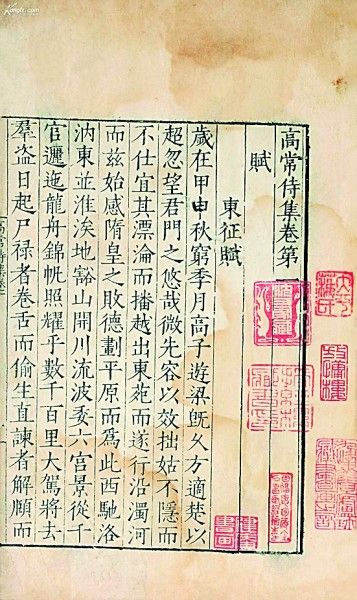 高常侍集卷第
賦
東征賦
歲在甲申秋窮季月高子遊梁旣久方適楚以
超忽望君門之悠哉微先容以效拙姑不隱而
不仕宜其漂淪而播越出東苑而遂行沿濁河
而茲始感隋皇之敗德劃平原而爲此西馳洛
汭東並淮涘地豁山開川流波委六宮景從千
官邐迤龍舟錦帆照耀乎數千百里大駕將去
羣盗日起尸禄者卷舌而偷生直諫者解頤而